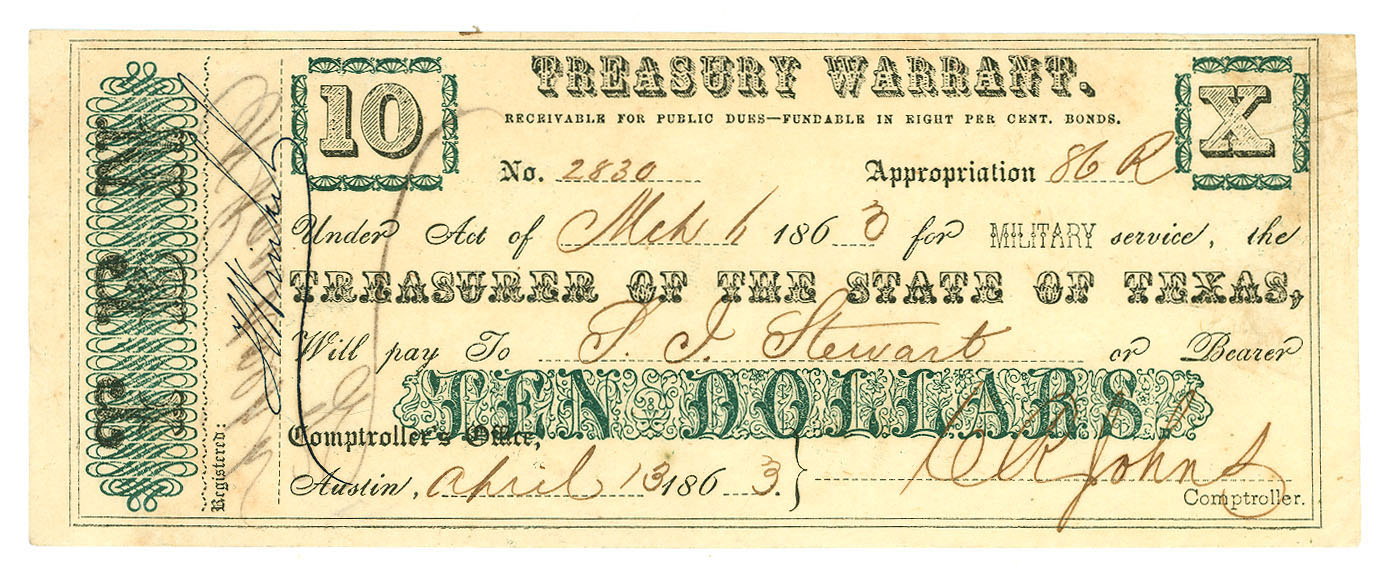 TEN
Registered:
10
TREASURY WARRANT.
X
RECEIVABLE FOR PUBLIC DUES—FUNDABLE IN EIGHT PER CENT. BONDS.
No. 2830 Appropriation 86 R
Under Act of Mch 6 1863 for MILITARY service, the
TREASURER OF THE STATE OF TEXAS,
Will pay To S. J. Stewart or Bearer
TEN DOLLARS.
Comptroller's Office,
Austin, April 13 1863. C R Johns
Comptroller.